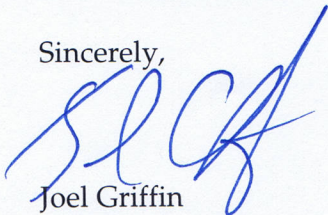 Sincerely,
Joel Griffin